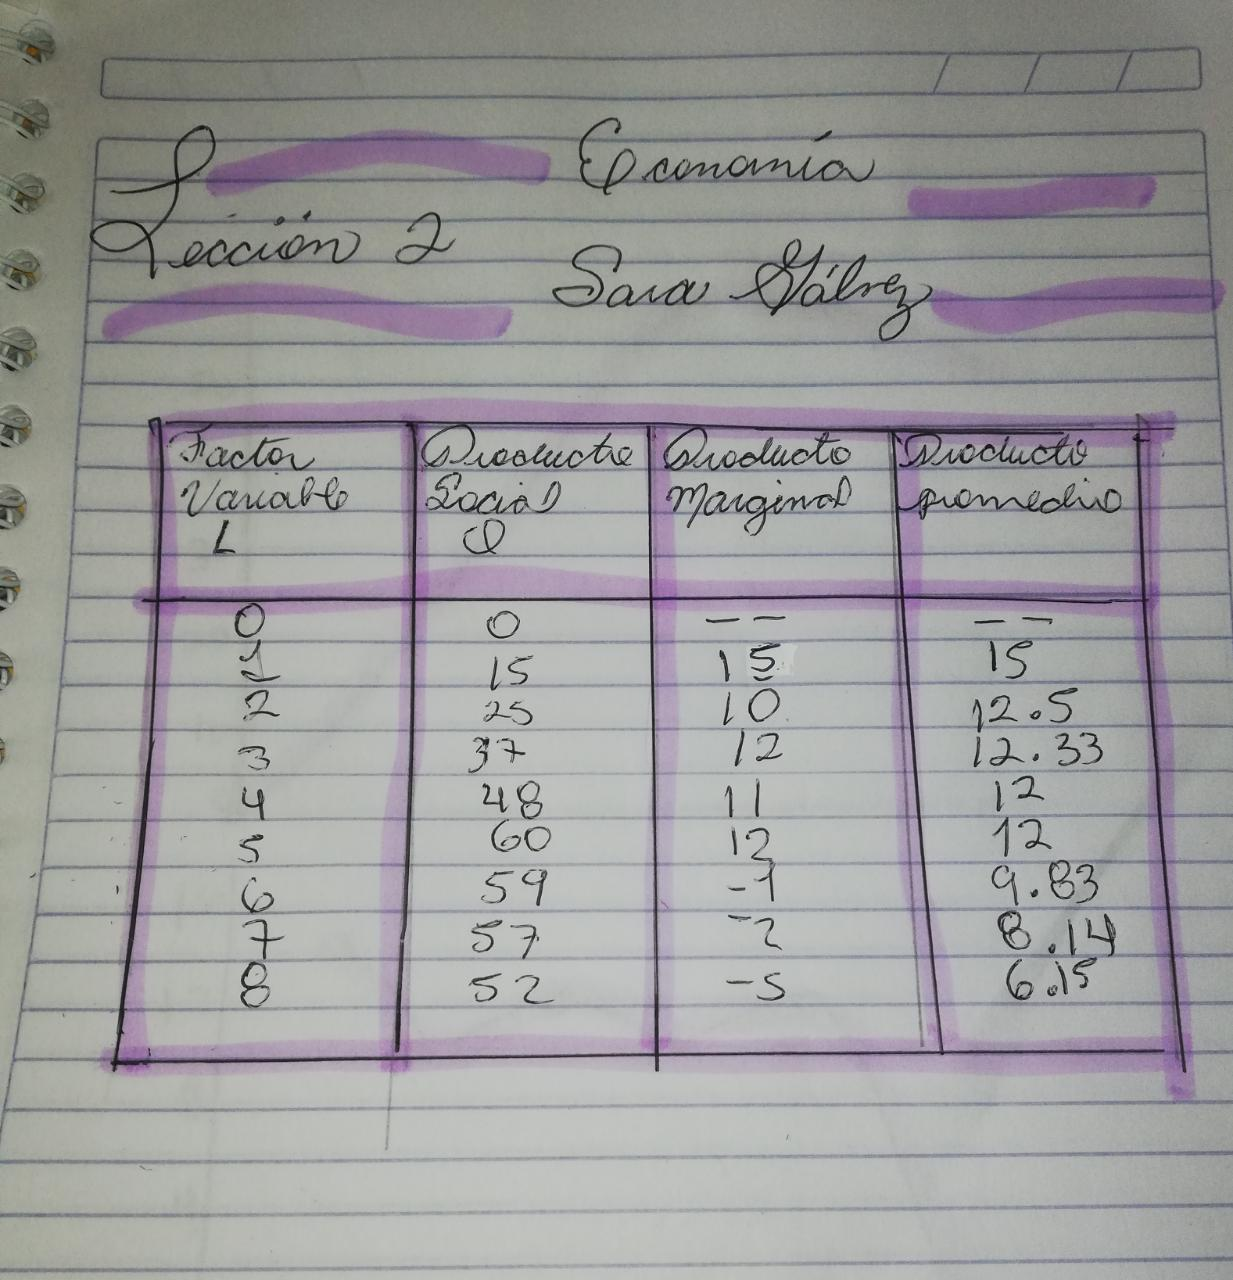 Economía
Lección 2
Sara Gálvez
Factor Variable L | Producto Social Q | Producto Marginal | Producto promedio
0 | 0 | -- | --
1 | 15 | 15 | 15
2 | 25 | 10 | 12.5
3 | 37 | 12 | 12.33
4 | 48 | 11 | 12
5 | 60 | 12 | 12
6 | 59 | -1 | 9.83
7 | 57 | -2 | 8.14
8 | 52 | -5 | 6.15